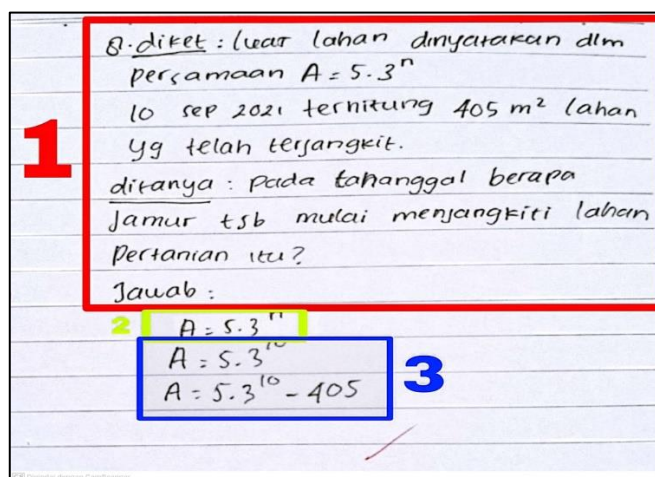 8. diket : luar lahan dinyatakan dlm
persamaan A = 5.3ⁿ
10 sep 2021 terhitung 405 m² lahan
yg telah terjangkit.
ditanya : pada tahanggal berapa
Jamur tsb mulai menjangkiti lahan
pertanian itu?
Jawab :
1
2
A = 5.3ⁿ
A = 5.3¹⁰
A = 5.3¹⁰ - 405
3